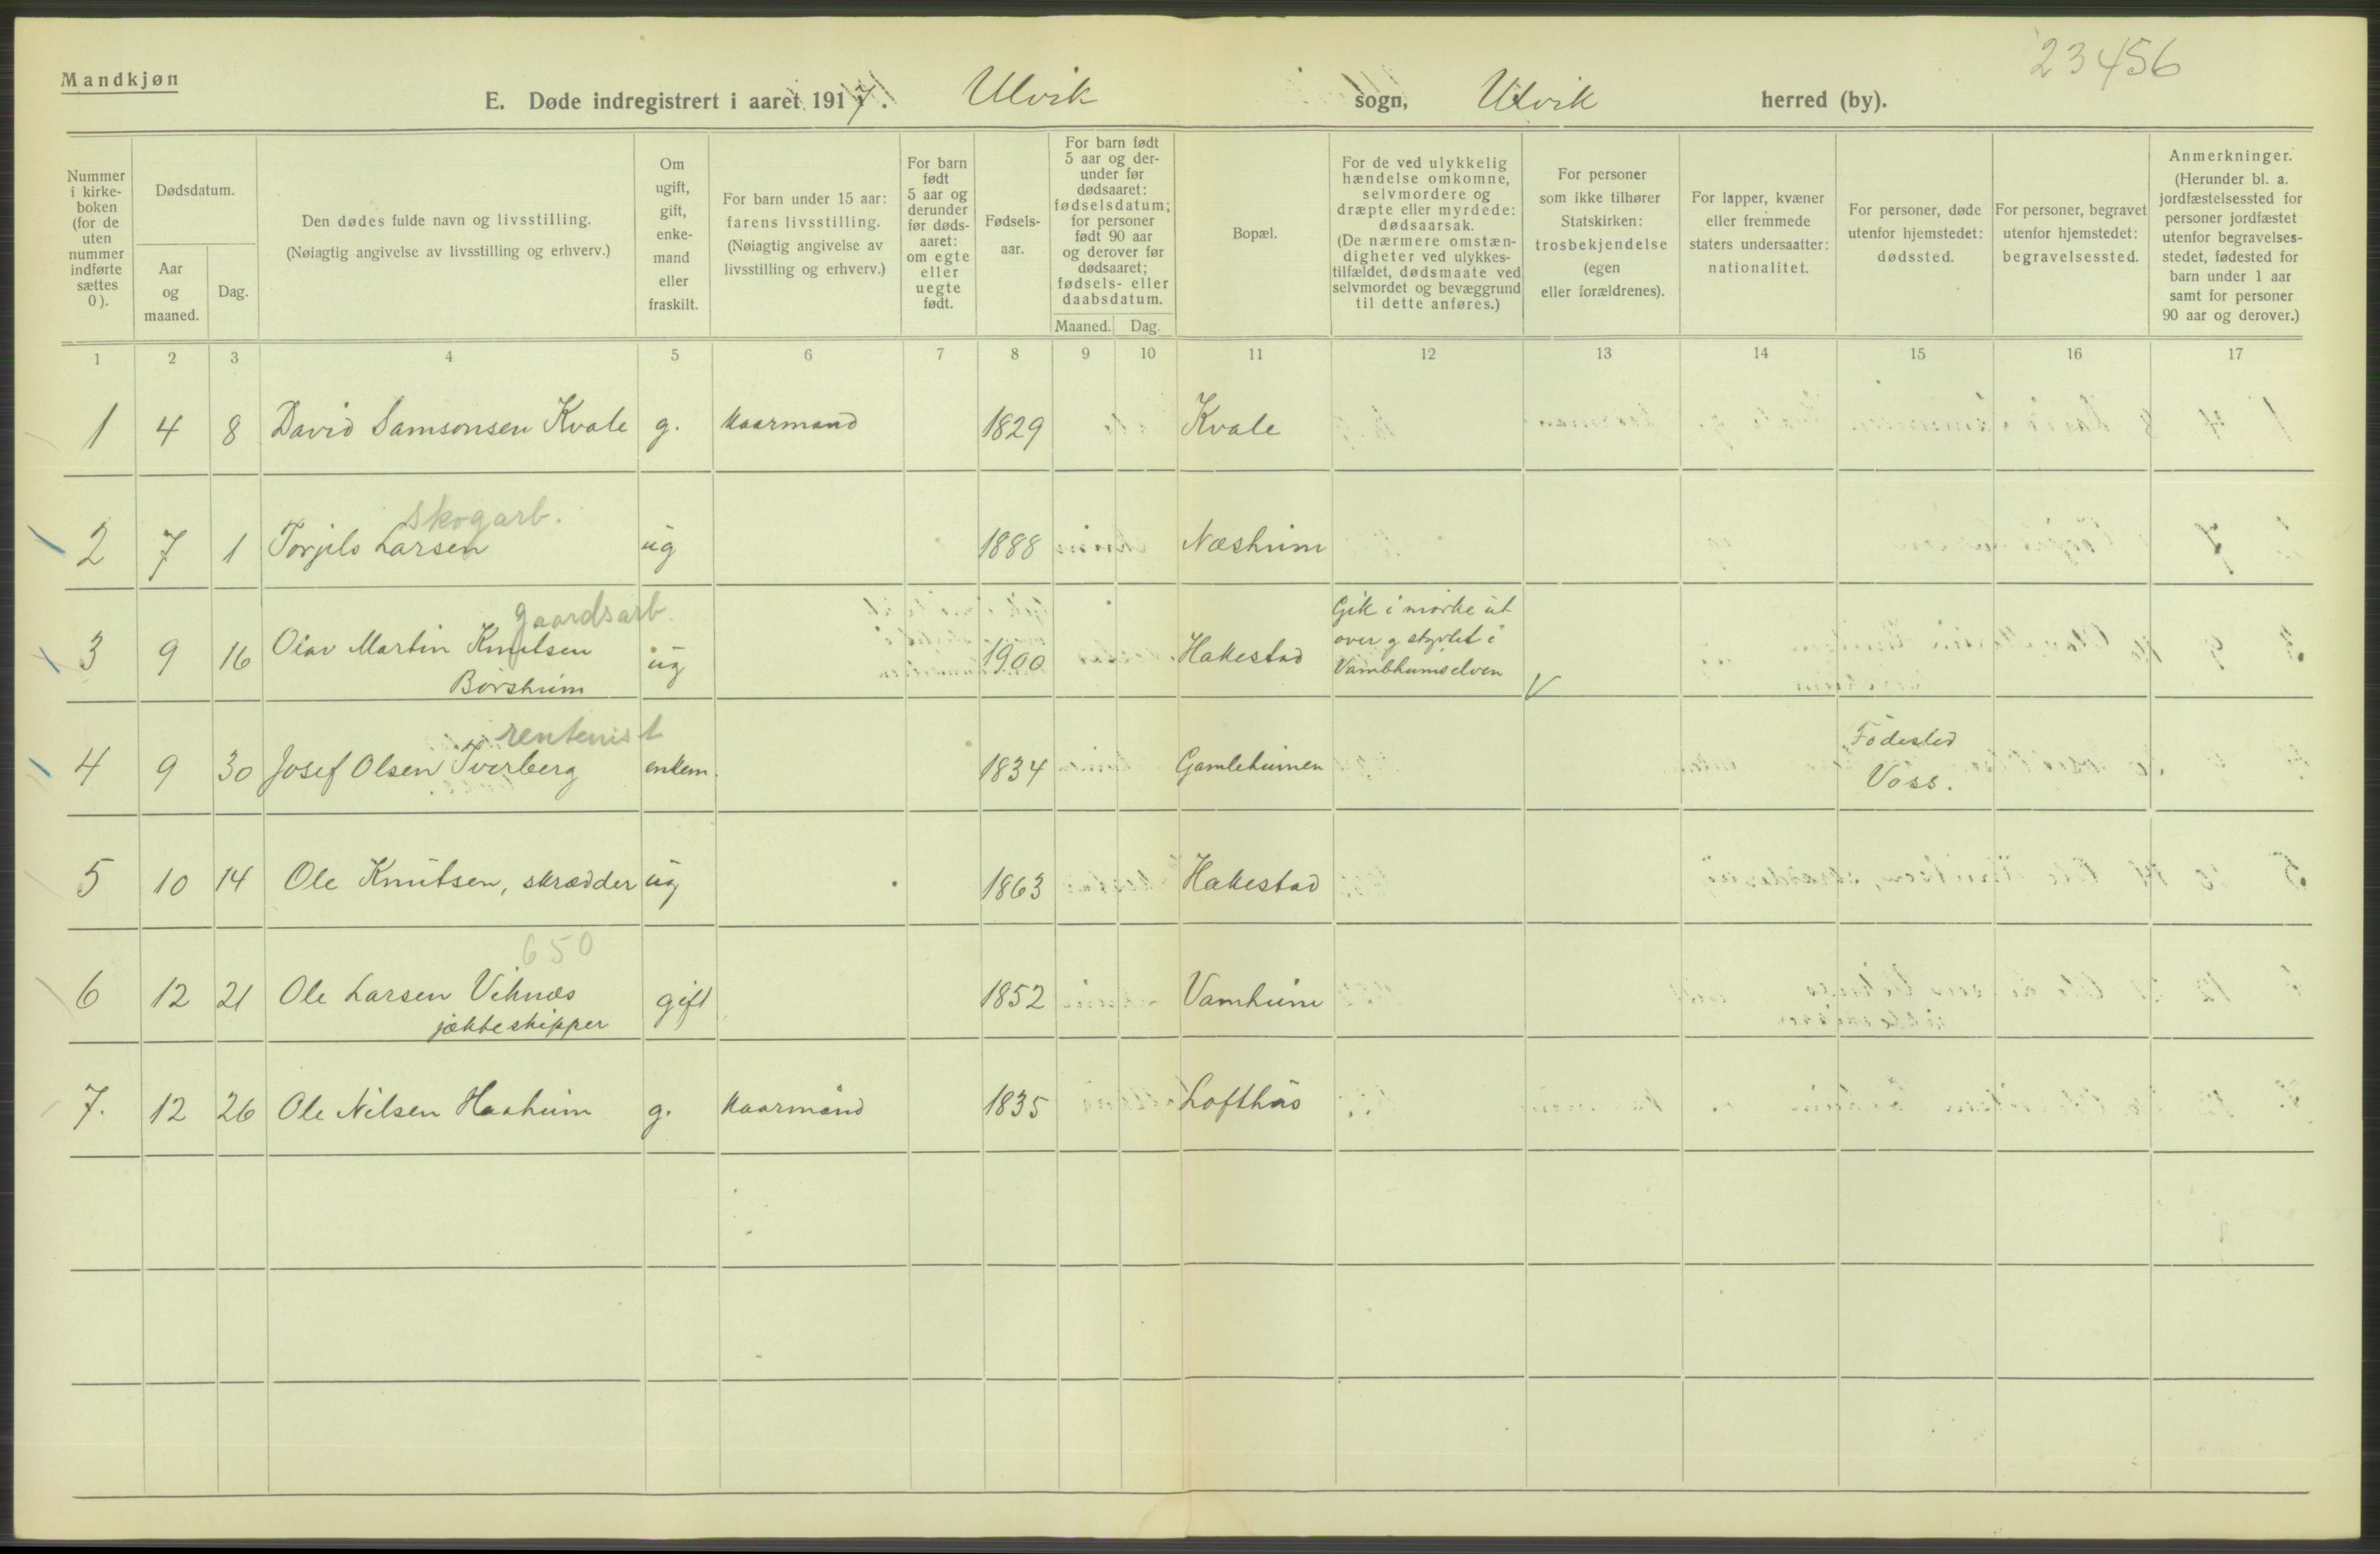 23456
Mandkjøn
E. Døde indregistrert i aaret 1917. Ulvik sogn, Ulvik herred (by).
Nummer i kirke-boken (for de uten nummer indførte sættes 0).
Dødsdatum.
Aar og maaned.
Dag.
Den dødes fulde navn og livsstilling.
(Nøiagtig angivelse av livsstilling og erhverv.)
Om ugift, gift, enke-mand eller fraskilt.
For barn under 15 aar: farens livsstilling.
(Nøiagtig angivelse av livsstilling og erhverv.)
For barn født 5 aar og derunder før døds-aaret: om egte eller uegte født.
Fødsels-aar.
For barn født 5 aar og der-under før dødsaaret: fødselsdatum; for personer født 90 aar og derover før dødsaaret; fødsels- eller daabsdatum.
Maaned. Dag.
Bopæl.
For de ved ulykkelig hændelse omkomne, selvmordere og dræpte eller myrdede: dødsaarsak.
(De nærmere omstæn-digheter ved ulykkes-tilfældet, dødsmaate ved selvmordet og bevæggrund til dette anføres.)
For personer som ikke tilhører Statskirken: trosbekjendelse (egen eller forældrenes).
For lapper, kvæner eller fremmede staters undersaatter: nationalitet.
For personer, døde utenfor hjemstedet: dødssted.
For personer, begravet utenfor hjemstedet: begravelsessted.
Anmerkninger.
(Herunder bl. a. jordfæstelsessted for personer jordfæstet utenfor begravelses-stedet, fødested for barn under 1 aar samt for personer 90 aar og derover.)
1 2 3 4 5 6 7 8 9 10 11 12 13 14 15 16 17
1 4 8 David Samsonsen Kvale g. kaarmand 1829 Kvale
skogarb.
2 7 1 Torjils Larsen ug 1888 Næsheim
gaardsarb.
3 9 16 Olav Martin Knutsen ug 1900 Hakestad Gik i mørke ut
over g styrtet i
Børsheim Vambheimselven V
rentenist
4 9 30 Josef Olsen Tverberg enkem. 1834 Gamleheimen Fødested
Voss.
5 10 14 Ole Knutsen, skrædder ug 1863 Hakestad
650
6 12 21 Ole Larsen Viknæs gift 1852 Vamheim
jækteskipper
7. 12 26 Ole Nilsen Haaheim g. kaarmand 1835 Lofthus